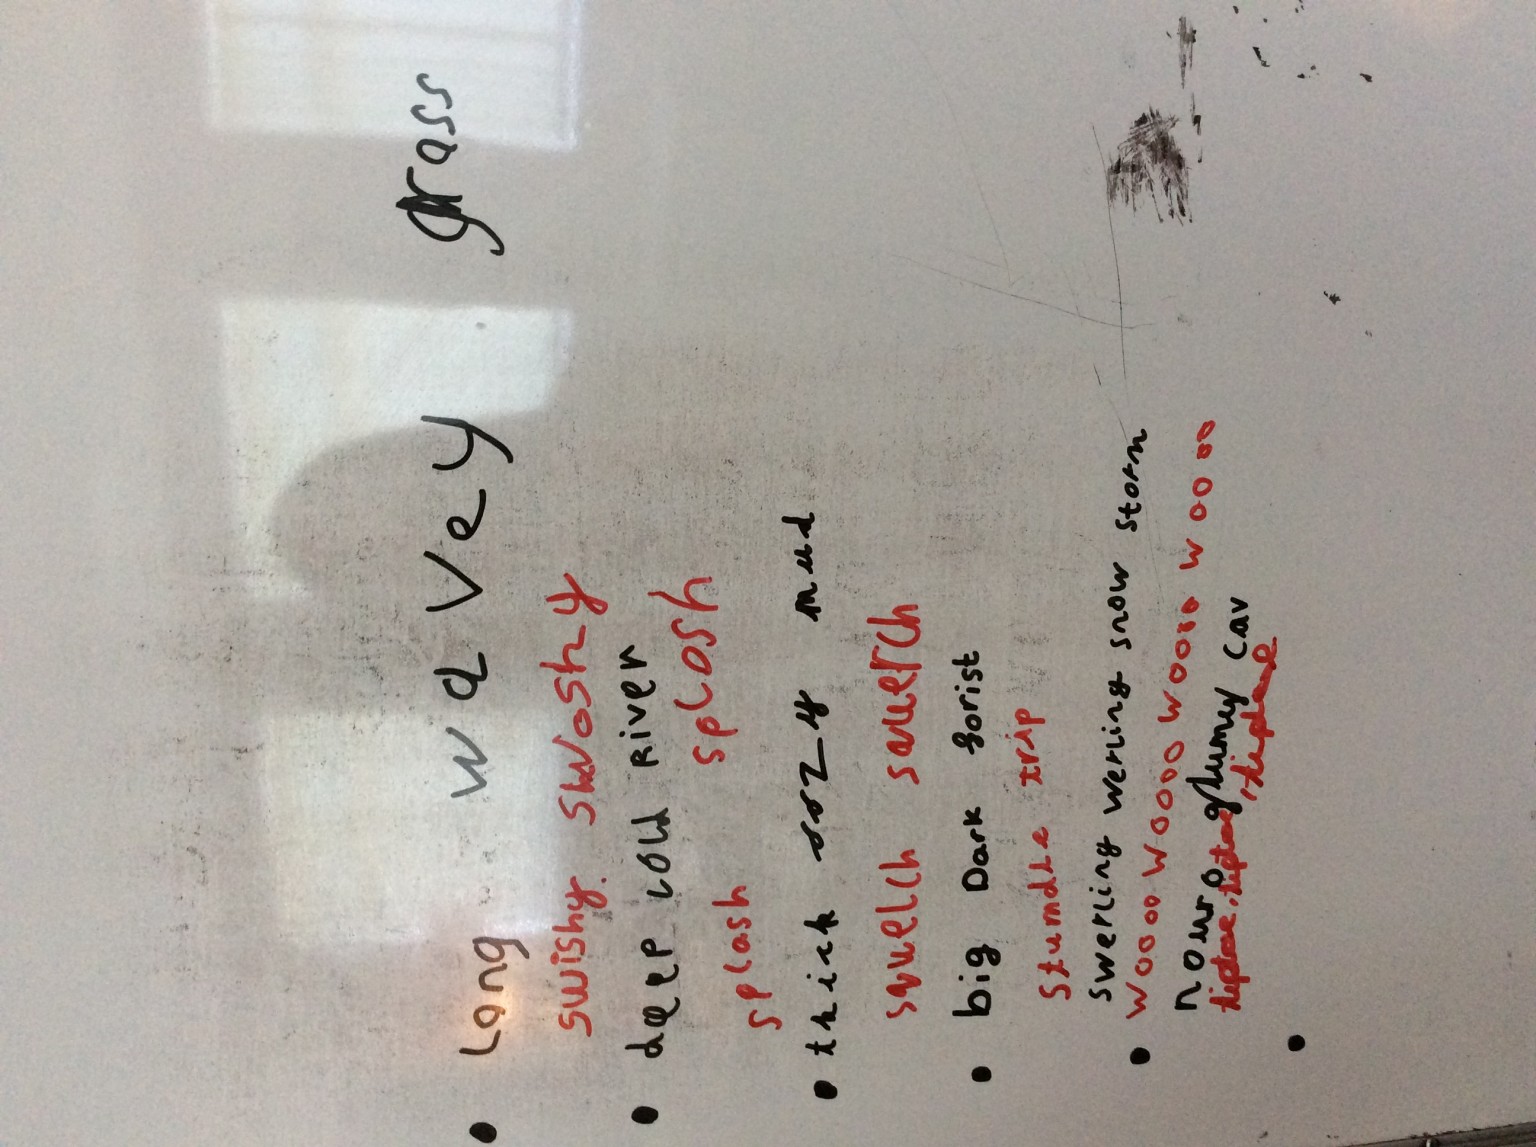 long wavey grass
swishy swoshy
deep cold River
splash splosh
thick oozy mud
squelch squerch
big Dark forist
stumdle trip
swerling werling snow storm
woooo woooo woooo woooo
nowro glumy cav
tiptoe, tiptoe, tiptoe